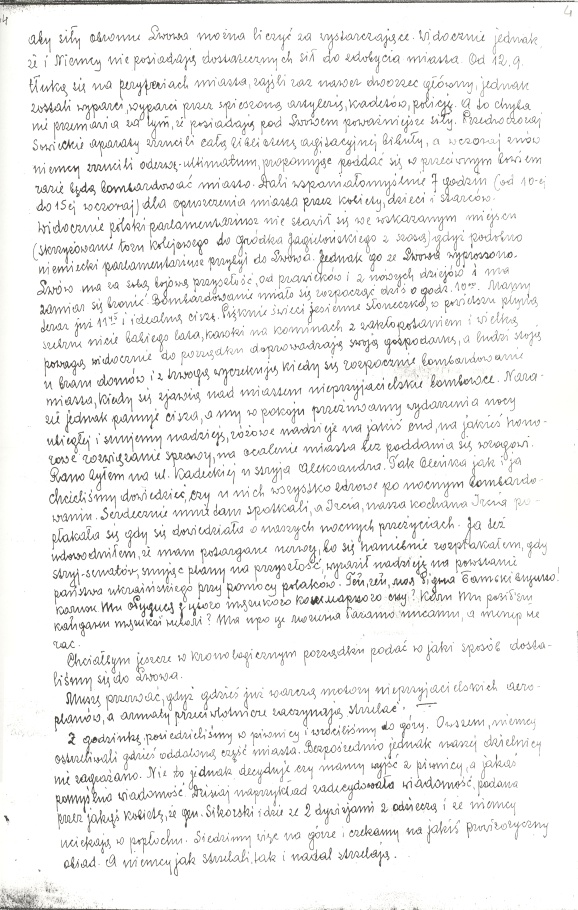 4
aby siły obronne Lwowa można liczyć za wystarczające. Widocznie jednak
że i Niemcy nie posiadają dostatecznych sił do zdobycia miasta. Od 12.9.
tłuką się na peryferiach miasta, zajęli raz nawet dworzec główny, jednak
zostali wyparci, wyparci przez spieszoną artylerię, kadetów, policję. A to chyba
nie przemawia za tym, że posiadają pod Lwowem poważniejsze siły. Przedwczoraj
Sowieckie aparaty zrzuciły całą bibliotekę agitacyjnej bibuły, a wczoraj znów
niemcy zrzucili odezwę-ultimatum, proponując poddać się w przeciwnym bowiem
razie będą bombardować miasto. Dali wspaniałomyślnie 7 godzin (od 10-ej
do 15ej wczoraj) dla opuszczenia miasta przez kobiety, dzieci i starców.
Widocznie polski parlamentariusz nie stawił się we wskazanym miejscu
(skrzyżowanie toru kolejowego do Gródka Jagielońskiego z szosą) gdyż podobno
niemiecki parlamentariusz przybył do Lwowa. Jednak go ze Lwowa wyproszono.
Lwów ma za sobą bojową przeszłość, od prawieków i z nowych dziejów i ma
zamiar się bronić. Bombardowanie miało się rozpocząć dziś o godz. 10. Mamy
teraz już 11 i idealną ciszę. Pięknie świeci jesienne słoneczko, w powietrzu płyną
srebrne nicie babiego lata, kawki na kominach z zakłopotaniem i wielką
powagą widocznie do porządku doprowadzają swoją gospodarkę, a ludzi stoją
u bram domów i z trwogą wyczekują kiedy się rozpocznie bombardowanie
miasta, kiedy się zjawią nad miastem nieprzyjacielskie bombowce. Nara-
zie jednak panuje cisza, a my w pokoju przeżuwamy wydarzenia nocy
ubiegłej i snujemy nadzieję, różowe nadzieje na jakiś cud, na jakieś hono-
rowe rozwiązanie sprawy, na ocalenie miasta bez poddania się wrogowi.
Rano byłem na ul. Kadeckiej u stryja Aleksandra. Tak Oleńka jak i ja
chcieliśmy dowiedzieć, czy u nich wszystko zdrowe po nocnym bombardo-
waniu. Serdecznie mnie tam spotkali, a Ircia, nasza kochana Ircia po-
płakała się gdy się dowiedziała o naszych nocnych przeżyciach. Ja też
udowodniłem, że mam potargane nerwy, bo się haniebnie rozpłakałem, gdy
stryj-senator, snując plany na przyszłość, wyraził nadzieję na powstanie
państwa ukraińskiego przy pomocy polaków.
rac.
Chciałbym jeszcze w kronologicznym porządku podać w jaki sposób dosta-
liśmy się do Lwowa.
Muszę przerwać, gdyż gdzieś już warczą motory nieprzyjacielskich aero-
planów, a armaty przeciwlotnicze zaczynają strzelać. —
Z godzinkę posiedzieliśmy w piwnicy i wróciliśmy do góry. Owszem, niemcy
ostrzeliwali gdzieś oddaloną część miasta. Bezpośrednio jednak naszej dzielnicy
nie zagrażano. Nie to jednak decyduje czy mamy wyjść z piwnicy, a jakaś
pomyślna wiadomość. Dzisiaj naprzykład zadecydowała wiadomość, podana
przez jakąś kobietę, że gen. Sikorski idzie ze 2 dywizjami z odsieczą i że niemcy
uciekają w popłochu. Siedzimy więc na górze i czekamy na jakiś prowizoryczny
obiad. A niemcy jak strzelali, tak i nadal strzelają.